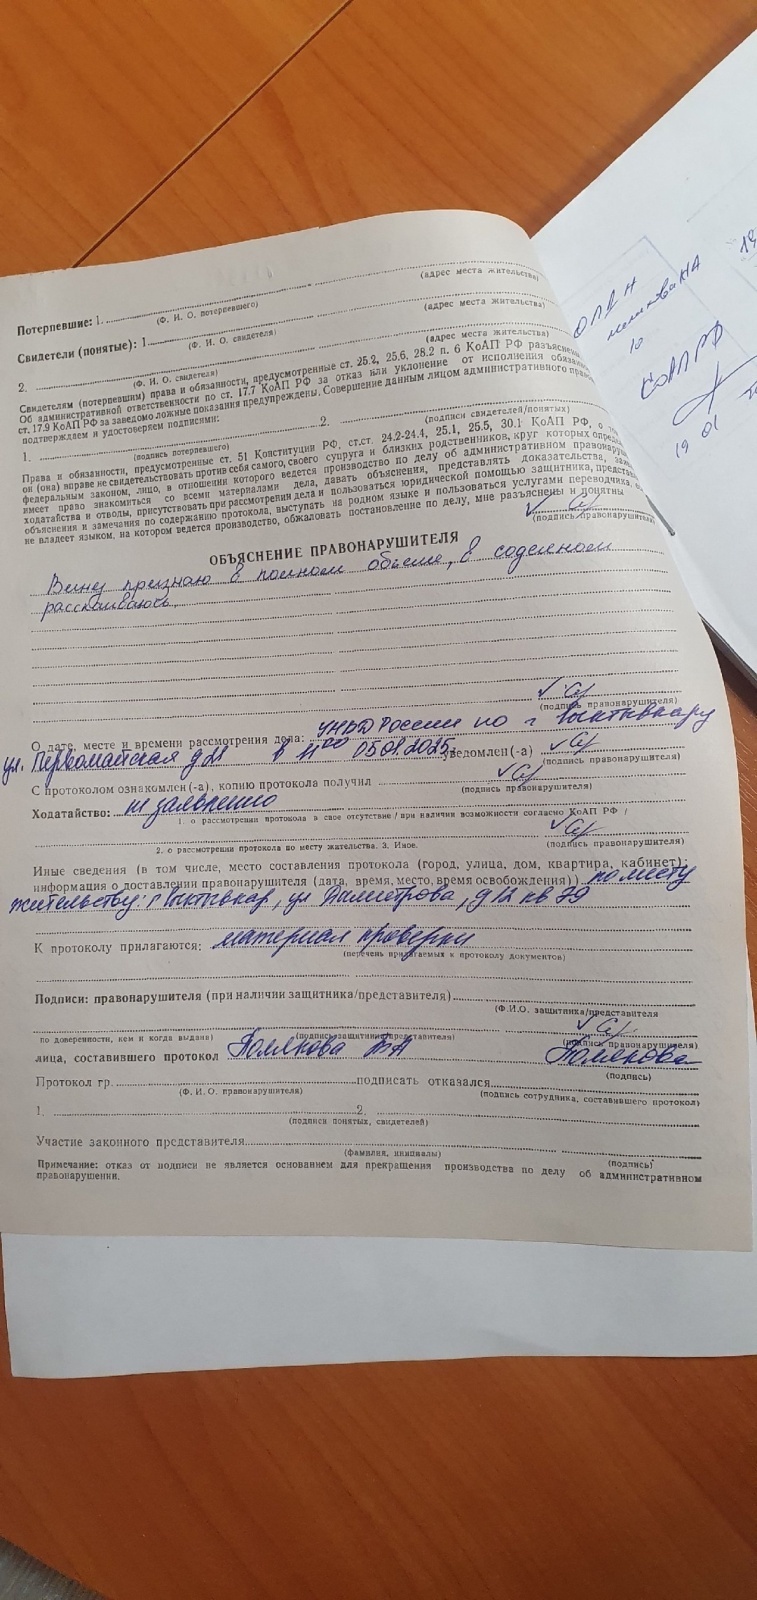 (адрес места жительства)
Потерпевшие: 1.
(Ф. И. О. потерпевшего)
(адрес места жительства)
Свидетели (понятые): 1
(Ф. И. О. свидетеля)
(адрес места жительства)
2.
(Ф. И. О. свидетеля)
Свидетелям (потерпевшим) права и обязанности, предусмотренные ст. 25.2, 25.6, 28.2 п. 6 КоАП РФ разъяснены
Об административной ответственности по ст. 17.7 КоАП РФ за отказ или уклонение от исполнения
ст. 17.9 КоАП РФ за заведомо ложные показания предупреждены. Совершение данным лицом административного
подтверждаем и удостоверяем подписями:
1. 2.
(подпись потерпевшего) (подпись свидетелей/понятых)
Права и обязанности, предусмотренные ст. 51 Конституции РФ, ст.ст. 24.2-24.4, 25.1, 25.5, 30.1 КоАП РФ, о
он (она) вправе не свидетельствовать против себя самого, своего супруга и близких родственников, круг которых
федеральным законом, лицо, в отношении которого ведется производство по делу об административном
имеет право знакомиться со всеми материалами дела, давать объяснения, представлять доказательства,
ходатайства и отводы, присутствовать при рассмотрении дела и пользоваться юридической помощью защитника,
объяснения и замечания по содержанию протокола, выступать на родном языке и пользоваться услугами переводчика,
не владеет языком, на котором ведется производство, обжаловать постановление по делу, мне разъяснены и понятны
(подпись правонарушителя)
ОБЪЯСНЕНИЕ ПРАВОНАРУШИТЕЛЯ
Вину признаю в полном объеме, в содеянном
раскаиваюсь.
(подпись правонарушителя)
О дате, месте и времени рассмотрения дела: УМВД России по г Сыктывкару
ул. Первомайская д 21 в 11 00 2025г уведомлен (-а)
(подпись правонарушителя)
С протоколом ознакомлен (-а), копию протокола получил
(подпись правонарушителя)
Ходатайство: не заявлено
1. о рассмотрении протокола в свое отсутствие / при наличии возможности согласно КоАП РФ /
2. о рассмотрении протокола по месту жительства. 3. Иное. (подпись правонарушителя)
Иные сведения (в том числе, место составления протокола (город, улица, дом, квартира, кабинет);
информация о доставлении правонарушителя (дата, время, место, время освобождения)) по месту
жительству: г Сыктывкар, ул Димитрова, д 12 кв 79
К протоколу прилагаются: материал проверки
(перечень прилагаемых к протоколу документов)
Подписи: правонарушителя (при наличии защитника/представителя)
(Ф.И.О. защитника/представителя
по доверенности, кем и когда выдана) (подпись защитника/представителя) (подпись правонарушителя)
лица, составившего протокол Полякова Полякова
(подпись)
Протокол гр. подписать отказался
(Ф. И. О. правонарушителя) (подпись сотрудника, составившего протокол)
1. 2.
(подписи понятых, свидетелей)
Участие законного представителя
(фамилия, инициалы) (подпись)
Примечание: отказ от подписи не является основанием для прекращения производства по делу об административном
правонарушении.
ОПДН
10
КоАП РФ
19 01